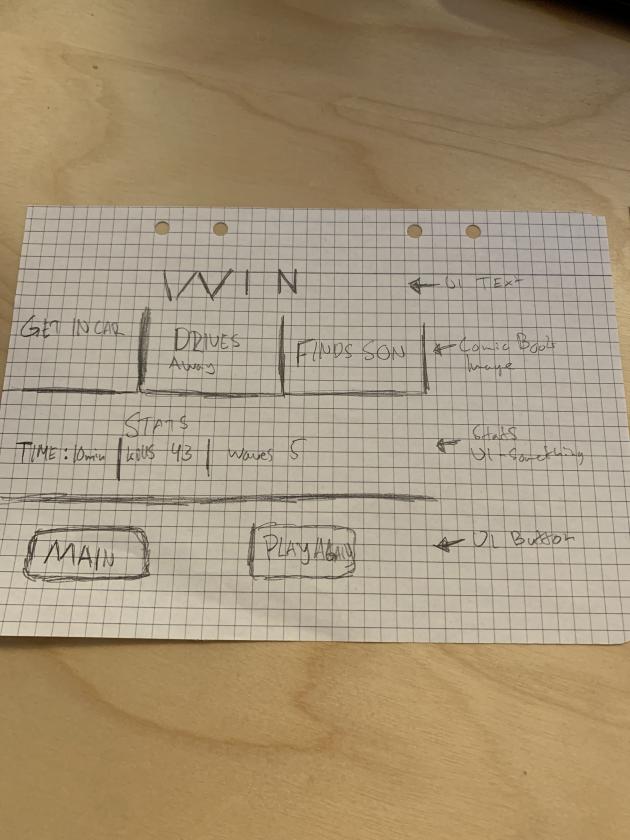 WIN
← UI TEXT
GET IN CAR
DRIVES
Away
FINDS SON
← Comic Book
Image
STATS
TIME: 10min | kills 43 | Waves 5
← Stats
UI-Something
MAIN
PLAY AGAIN
← UI Button